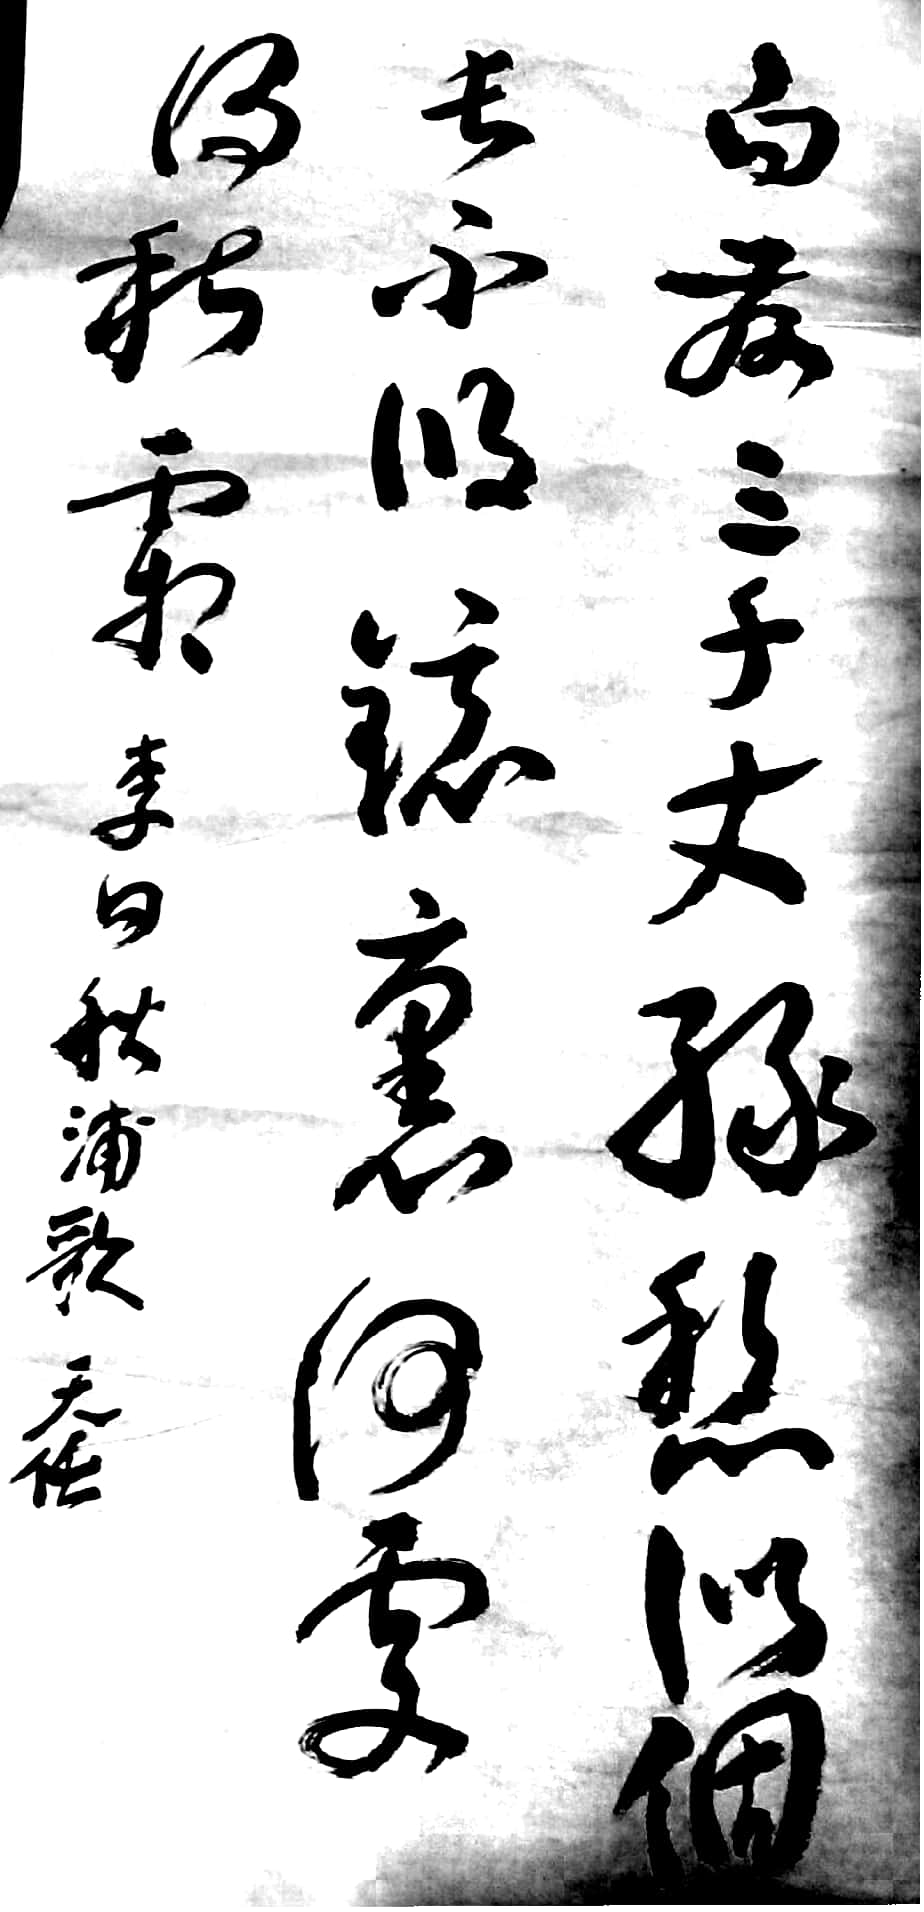 白髮三千丈緣愁似個
長不明鏡裏何處
得秋霜 李白秋浦歌 天佑